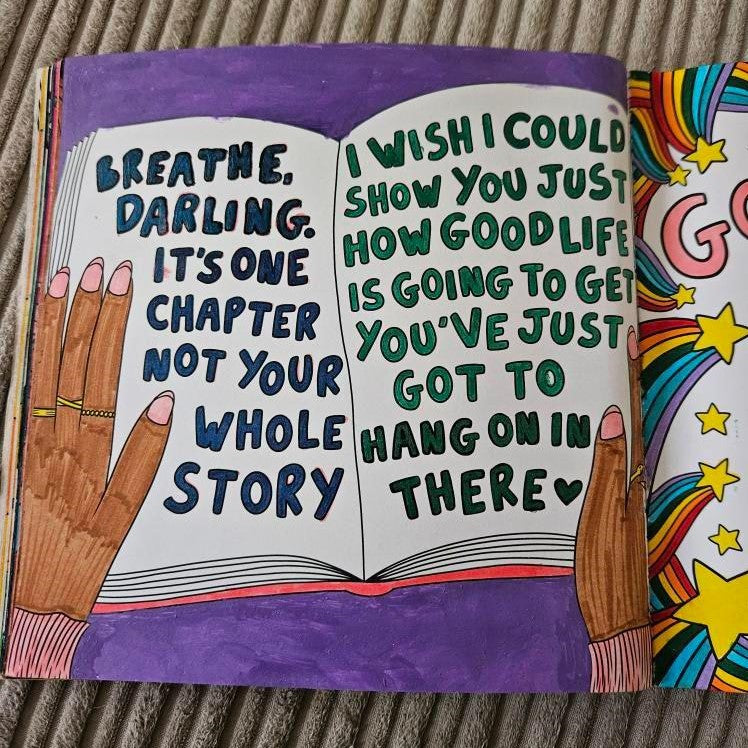 BREATHE,
DARLING.
IT'S ONE
CHAPTER
NOT YOUR
WHOLE
STORY
I WISH I COULD
SHOW YOU JUST
HOW GOOD LIFE
IS GOING TO GET
YOU'VE JUST
GOT TO
HANG ON IN
THERE♥